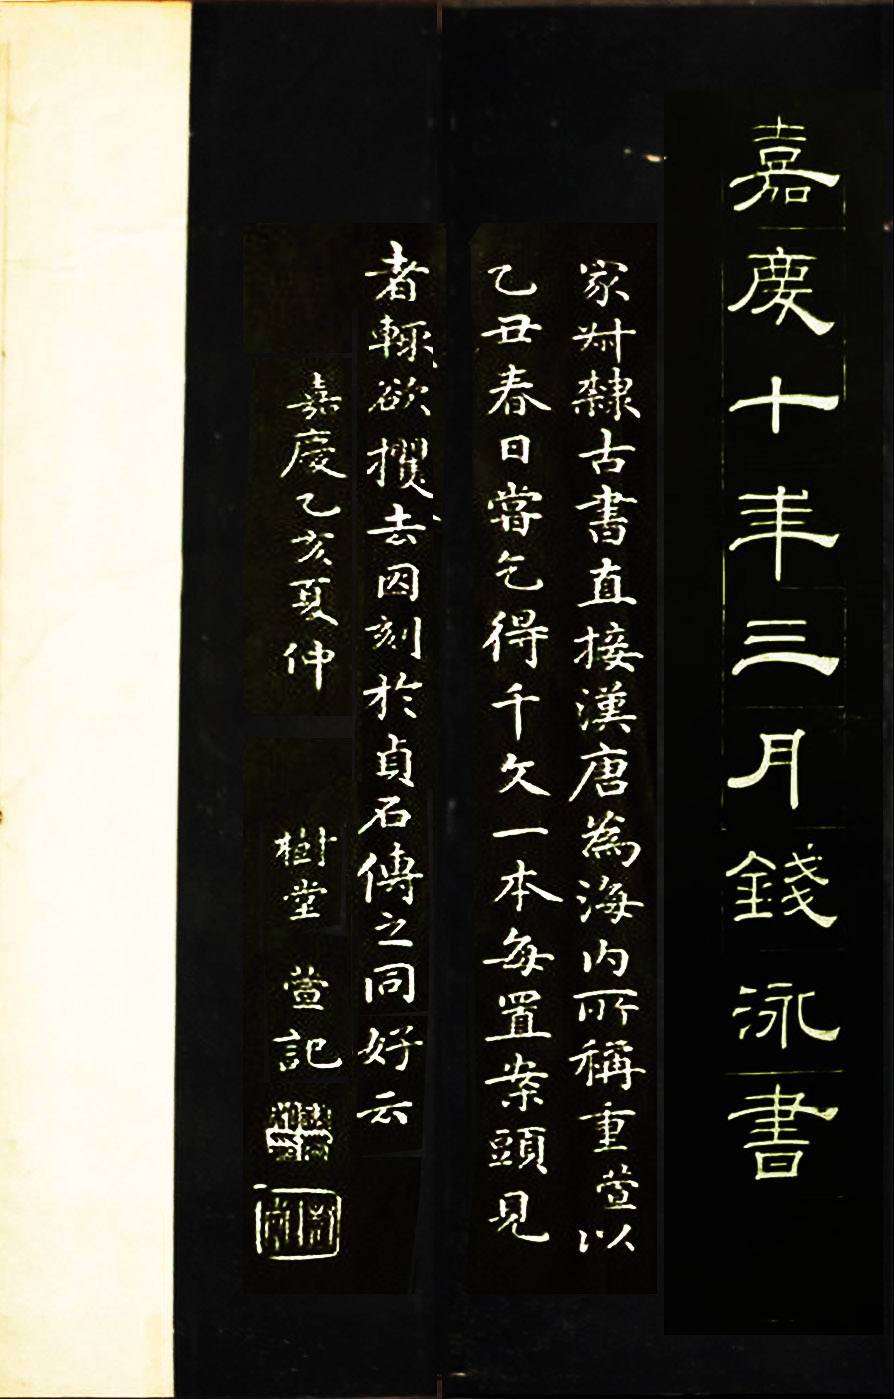 嘉慶十年三月錢泳書
家叔隸古書直接漢唐為海内所稱重萱以
乙丑春日嘗乞得千文一本每置案頭見
者輒欲攫去因刻於貞石傳之同好云
嘉慶乙亥夏仲 樹堂 萱記